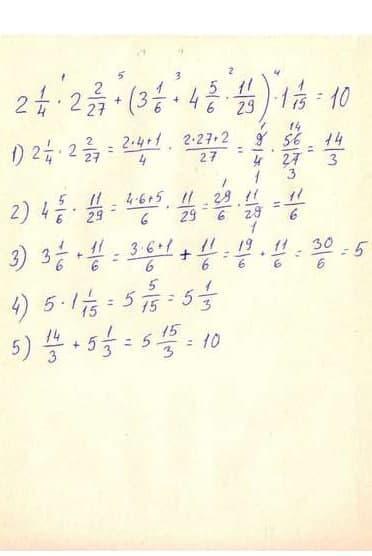 2 1/4 · 2 2/27 + (3 1/6 + 4 5/6 · 11/29) · 1 1/15 = 10
1) 2 1/4 · 2 2/27 = 2·4+1/4 · 2·27+2/27 = 9/4 · 56/27 = 14/3
2) 4 5/6 · 11/29 = 4·6+5/6 · 11/29 = 29/6 · 11/29 = 11/6
3) 3 1/6 + 11/6 = 3·6+1/6 + 11/6 = 19/6 + 11/6 = 30/6 = 5
4) 5 · 1 1/15 = 5 5/15 = 5 1/3
5) 14/3 + 5 1/3 = 5 15/3 = 10